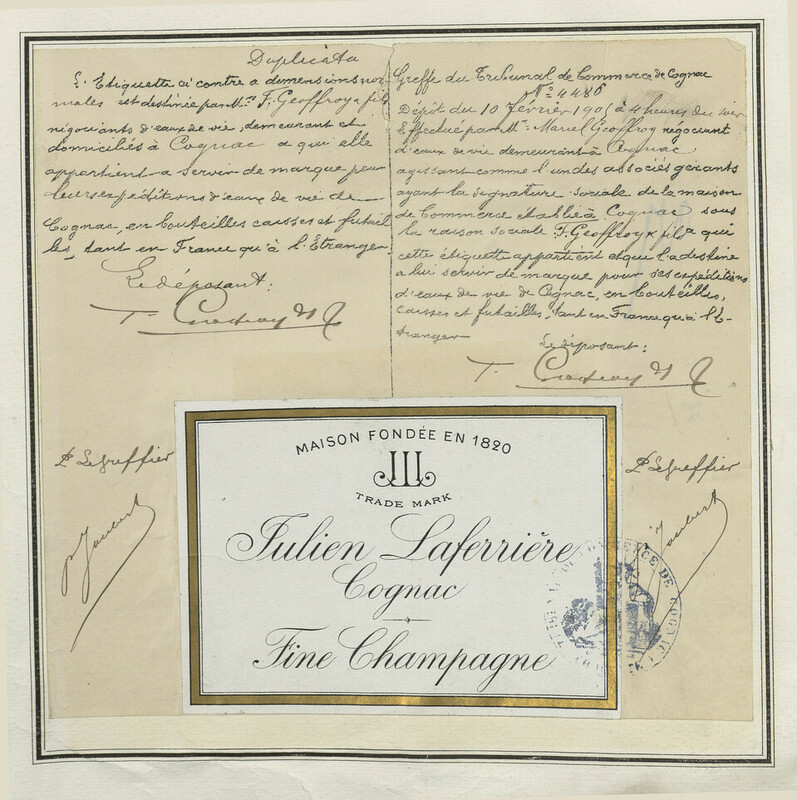 Duplicata
L'Etiquette ci contre a dimensions nor
males est destinée par Mrs F. Geoffroy & fils
négociants d'eaux de vie, demeurant et
domiciliés à Cognac a qui elle
appartient a servir de marque pour
leurs expéditions d'eaux de vie de
Cognac, en bouteilles caisses et futail
les, tant en France qu'à l'Étranger
Le déposant:
F. Geoffroy &
Greffe du Tribunal de Commerce de Cognac
N° 4486
Dépôt du 10 février 190 à 4 heures du soir
Effectué par Mr Geoffroy négociant
d'eaux de vie demeurant à Cognac
agissant comme l'un des associés gérants
ayant la signature sociale de la maison
de Commerce établie à Cognac sous
la raison sociale F. Geoffroy & fils a qui
cette étiquette appartient et qui l'a destine
a lui servir de marque pour ses expéditions
d'eaux de vie de Cognac, en bouteilles,
caisses et futailles, tant en France qu'à l'É-
tranger
Le déposant:
F. Geoffroy &
Le Greffier
Le Greffier
MAISON FONDÉE EN 1820
TRADE MARK
Julien Laferrière
Cognac
Fine Champagne